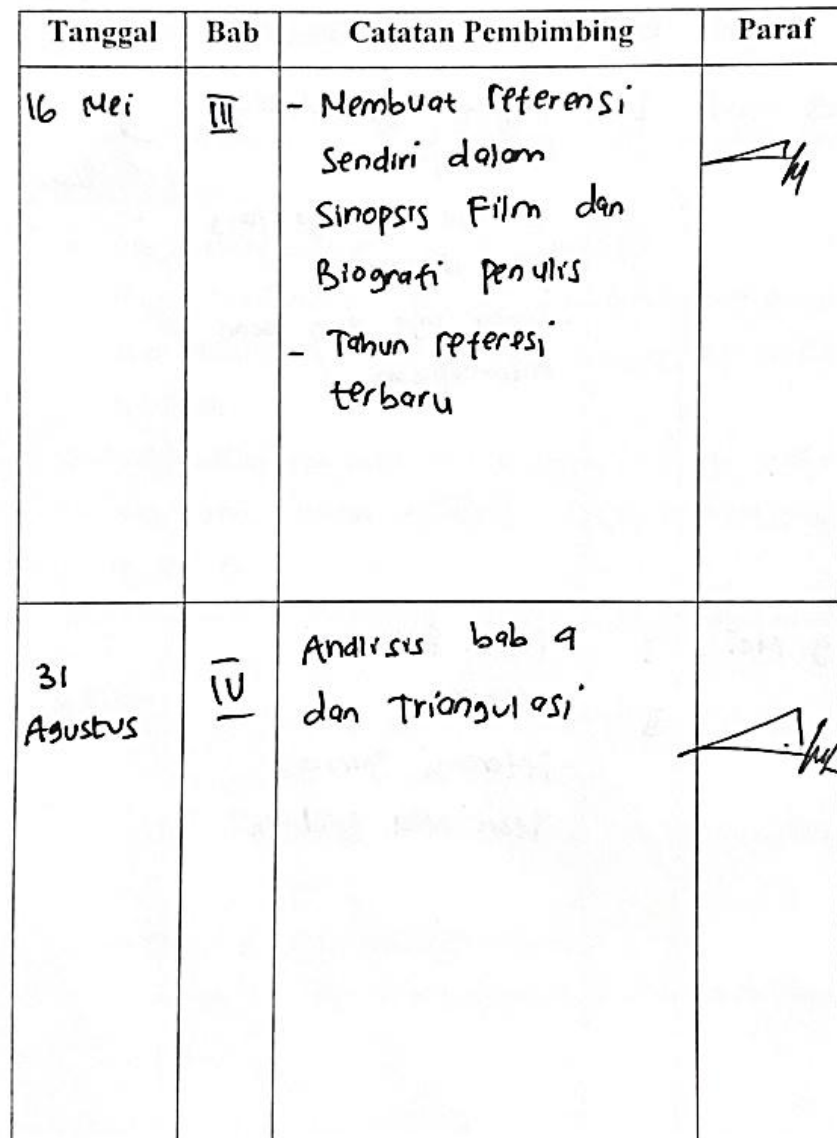 Tanggal Bab Catatan Pembimbing Paraf
16 Mei III - Membuat referensi
Sendiri dalam
Sinopsis Film dan
Biografi penulis
- Tahun referesi
terbaru
31 IV Analisis bab 4
Agustus dan Triangulasi